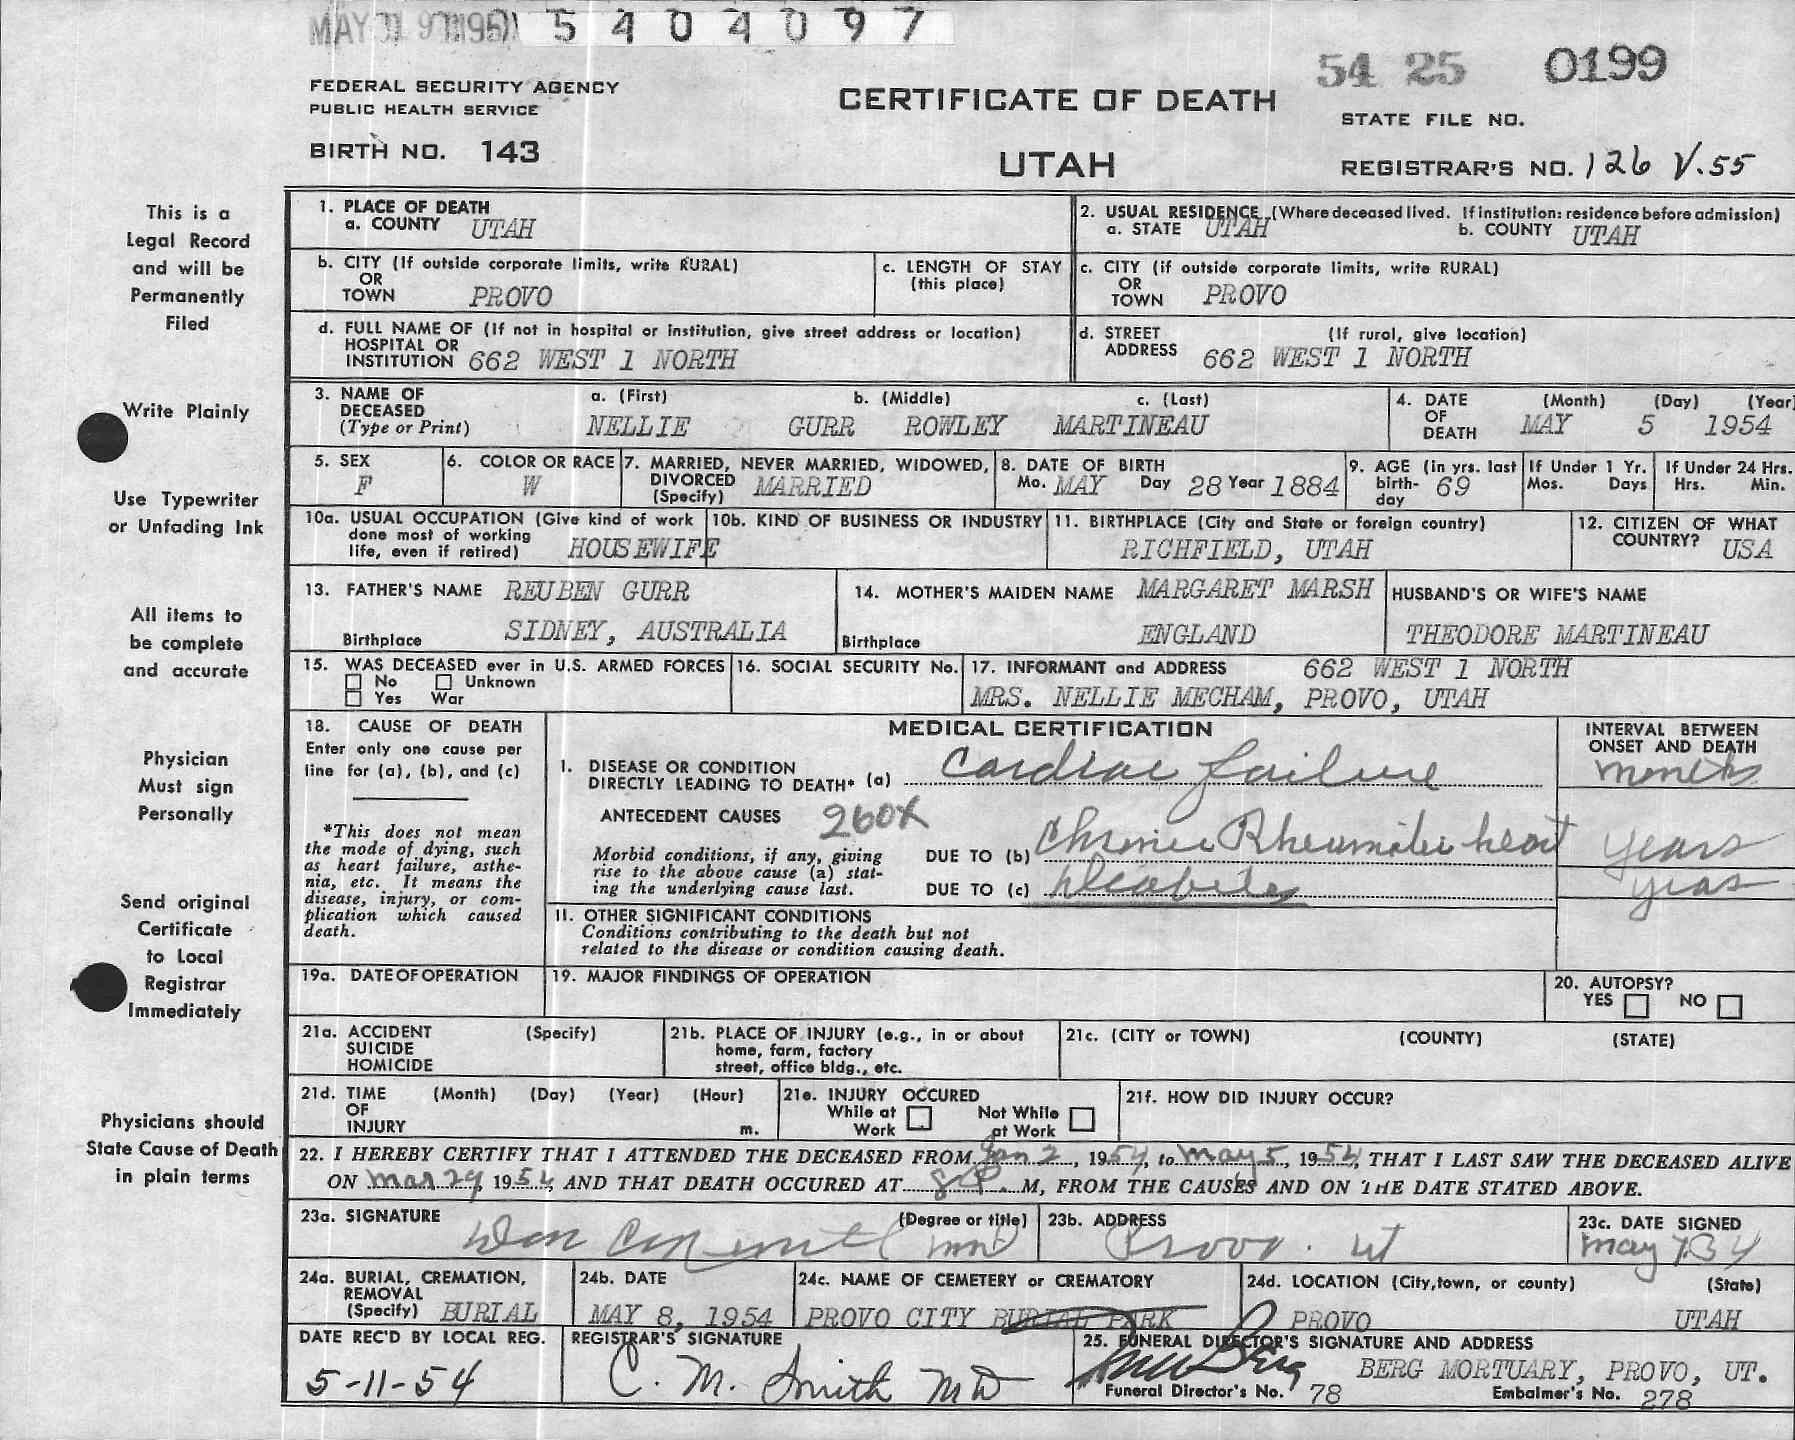 5404097
54 25 0199
FEDERAL SECURITY AGENCY
PUBLIC HEALTH SERVICE
CERTIFICATE OF DEATH
STATE FILE NO.
BIRTH NO. 143
UTAH
REGISTRAR'S NO. 126 V.55
This is a
Legal Record
and will be
Permanently
Filed
Write Plainly
Use Typewriter
or Unfading Ink
All items to
be complete
and accurate
Physician
Must sign
Personally
Send original
Certificate
to Local
Registrar
Immediately
Physicians should
State Cause of Death
in plain terms
1. PLACE OF DEATH
a. COUNTY UTAH
2. USUAL RESIDENCE (Where deceased lived. If institution: residence before admission)
a. STATE UTAH b. COUNTY UTAH
b. CITY (If outside corporate limits, write RURAL)
OR
TOWN PROVO
c. LENGTH OF STAY
(this place)
c. CITY (if outside corporate limits, write RURAL)
OR
TOWN PROVO
d. FULL NAME OF (If not in hospital or institution, give street address or location)
HOSPITAL OR
INSTITUTION 662 WEST 1 NORTH
d. STREET (If rural, give location)
ADDRESS 662 WEST 1 NORTH
3. NAME OF DECEASED (Type or Print)
a. (First) b. (Middle) c. (Last)
NELLIE GURR ROWLEY MARTINEAU
4. DATE OF DEATH (Month) (Day) (Year)
MAY 5 1954
5. SEX
F
6. COLOR OR RACE
W
7. MARRIED, NEVER MARRIED, WIDOWED,
DIVORCED
(Specify) MARRIED
8. DATE OF BIRTH
Mo. MAY Day 28 Year 1884
9. AGE (in yrs. last
birth-
day 69
If Under 1 Yr.
Mos. Days
If Under 24 Hrs.
Hrs. Min.
10a. USUAL OCCUPATION (Give kind of work
done most of working
life, even if retired) HOUSEWIFE
10b. KIND OF BUSINESS OR INDUSTRY
11. BIRTHPLACE (City and State or foreign country)
RICHFIELD, UTAH
12. CITIZEN OF WHAT
COUNTRY? USA
13. FATHER'S NAME REUBEN GURR
Birthplace SIDNEY, AUSTRALIA
14. MOTHER'S MAIDEN NAME MARGARET MARSH
Birthplace ENGLAND
HUSBAND'S OR WIFE'S NAME
THEODORE MARTINEAU
15. WAS DECEASED ever in U.S. ARMED FORCES
No Unknown
Yes War
16. SOCIAL SECURITY No.
17. INFORMANT and ADDRESS 662 WEST 1 NORTH
MRS. NELLIE MECHAM, PROVO, UTAH
18. CAUSE OF DEATH
Enter only one cause per
line for (a), (b), and (c)
*This does not mean
the mode of dying, such
as heart failure, asthe-
nia, etc. It means the
disease, injury, or com-
plication which caused
death.
MEDICAL CERTIFICATION
INTERVAL BETWEEN
ONSET AND DEATH
I. DISEASE OR CONDITION
DIRECTLY LEADING TO DEATH* (a) Cardiac failure months
ANTECEDENT CAUSES 260X
Morbid conditions, if any, giving
rise to the above cause (a) stat-
ing the underlying cause last.
DUE TO (b) Chronic Rheumatic heart years
DUE TO (c) Diabetes years
II. OTHER SIGNIFICANT CONDITIONS
Conditions contributing to the death but not
related to the disease or condition causing death.
19a. DATE OF OPERATION
19. MAJOR FINDINGS OF OPERATION
20. AUTOPSY?
YES NO
21a. ACCIDENT (Specify)
SUICIDE
HOMICIDE
21b. PLACE OF INJURY (e.g., in or about
home, farm, factory
street, office bldg., etc.
21c. (CITY or TOWN) (COUNTY) (STATE)
21d. TIME (Month) (Day) (Year) (Hour)
OF
INJURY m.
21e. INJURY OCCURED
While at Work Not While at Work
21f. HOW DID INJURY OCCUR?
22. I HEREBY CERTIFY THAT I ATTENDED THE DECEASED FROM Jan 2, 1954, to May 5, 1954, THAT I LAST SAW THE DECEASED ALIVE
ON Mar 29, 1954, AND THAT DEATH OCCURED AT M, FROM THE CAUSES AND ON THE DATE STATED ABOVE.
23a. SIGNATURE (Degree or title)
Don MD
23b. ADDRESS
Provo. Ut
23c. DATE SIGNED
May
24a. BURIAL, CREMATION,
REMOVAL
(Specify) BURIAL
24b. DATE
MAY 8, 1954
24c. NAME OF CEMETERY or CREMATORY
PROVO CITY BURIAL PARK
24d. LOCATION (City, town, or county) (State)
PROVO UTAH
DATE REC'D BY LOCAL REG.
5-11-54
REGISTRAR'S SIGNATURE
C. M. Smith MD
25. FUNERAL DIRECTOR'S SIGNATURE AND ADDRESS
Berg BERG MORTUARY, PROVO, UT.
Funeral Director's No. 78 Embalmer's No. 278